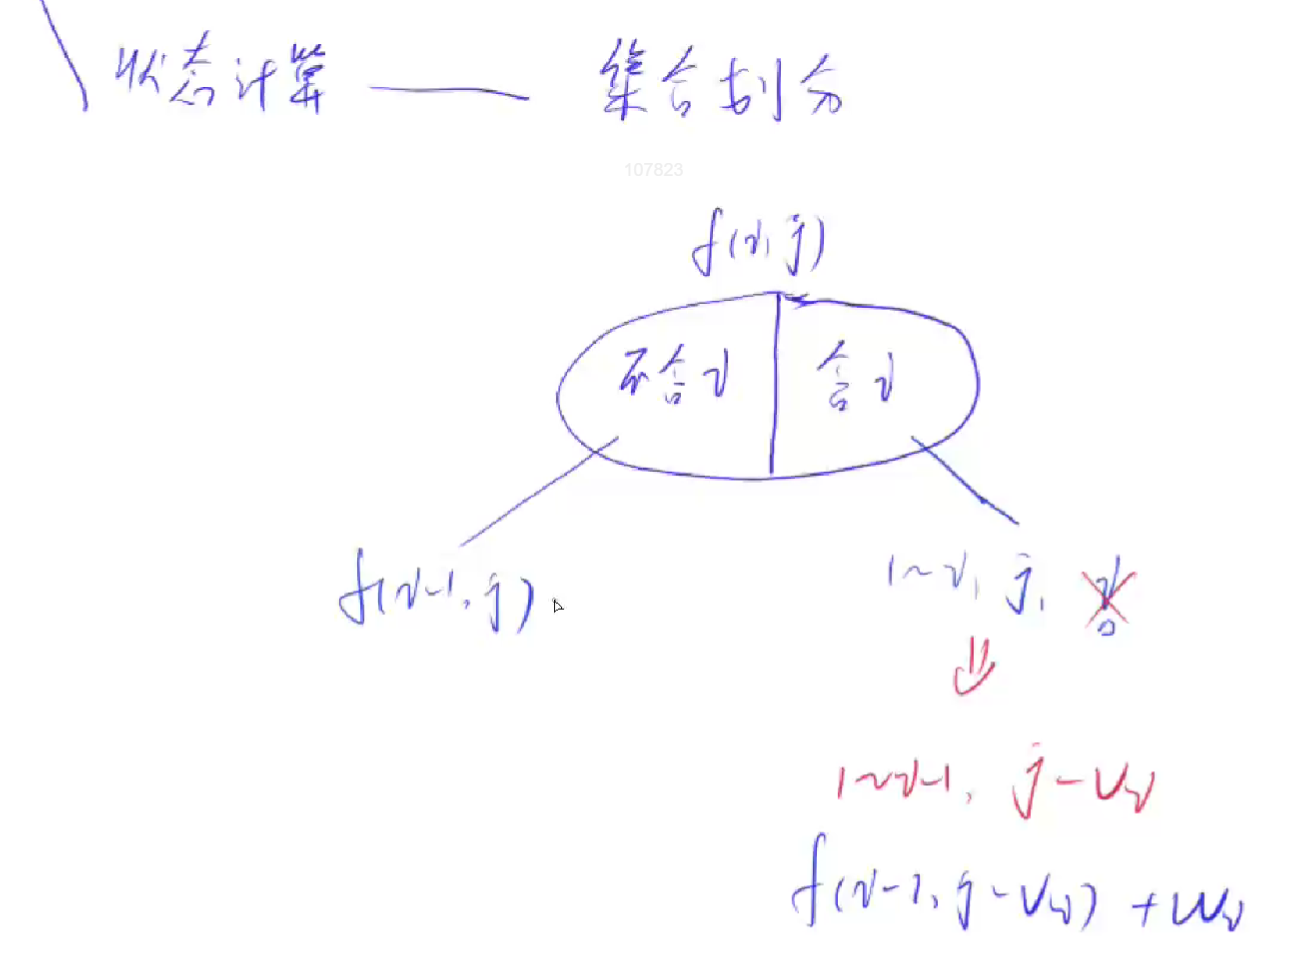 状态计算 —— 集合划分
107823
f(i, j)
不含i 含i
f(i-1, j)
1~i, j, 含i
1~i-1, j-vi
f(i-1, j-vi) + wi